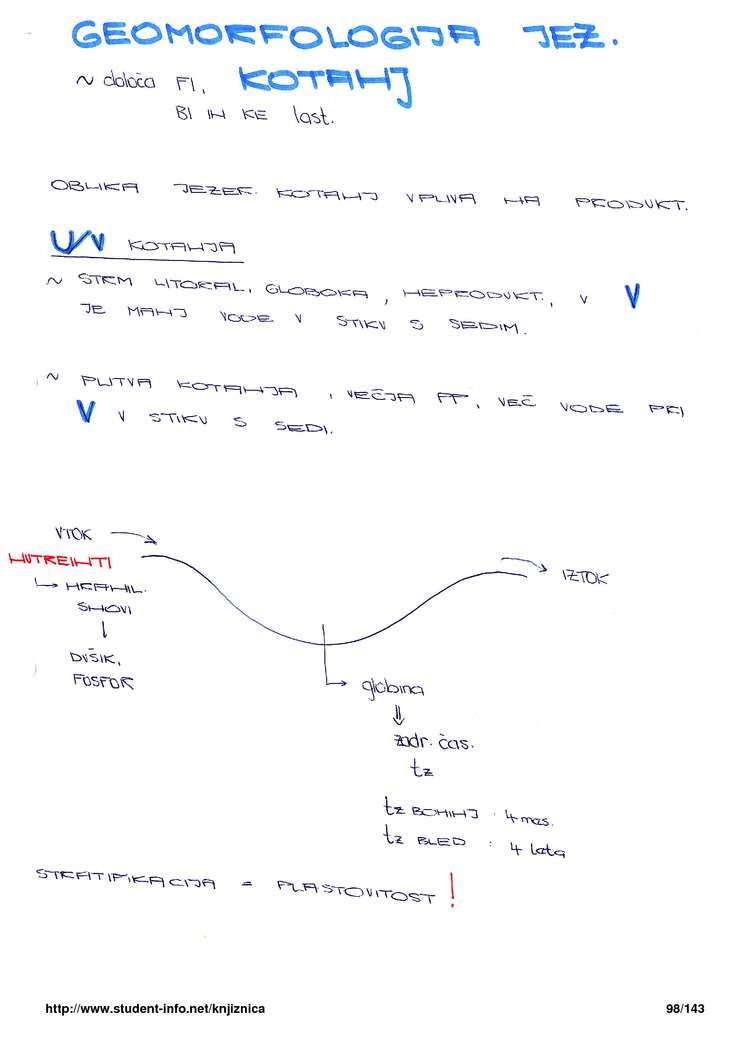 GEOMORFOLOGIJA JEZ.
KOTANJ
~ določa FI,
BI IN KE last.
OBLIKA JEZER. KOTANJ VPLIVA NA PRODUKT.
U/V KOTANJA
~ STRM LITORAL, GLOBOKA, NEPRODUKT., V V
JE MANJ VODE V STIKU S SEDIM.
~ PLITVA KOTANJA, VEČJA PP, VEČ VODE PRI
V V STIKU S SEDI.
VTOK
NUTRIENTI
↳ HRANIL.
SNOVI
↓
DUŠIK,
FOSFOR
IZTOK
globina
⇓
zadr. čas.
tz
tz BOHINJ : 4 mes.
tz BLED : 4 leta
STRATIFIKACIJA = PLASTOVITOST !
http://www.student-info.net/knjiznica
98/143